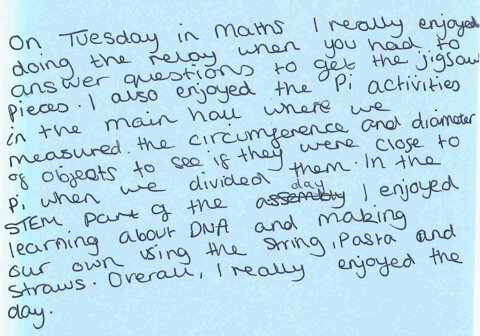 On Tuesday in maths I really enjoyed
doing the relay when you had to
answer questions to get the jigsaw
pieces. I also enjoyed the Pi activities
in the main hall where we
measured the circumference and diameter
of objects to see if they were close to
Pi when we divided them. In the
STEM part of the assembly day I enjoyed
learning about DNA and making
our own using the string, Pasta and
straws. Overall, I really enjoyed the
day.